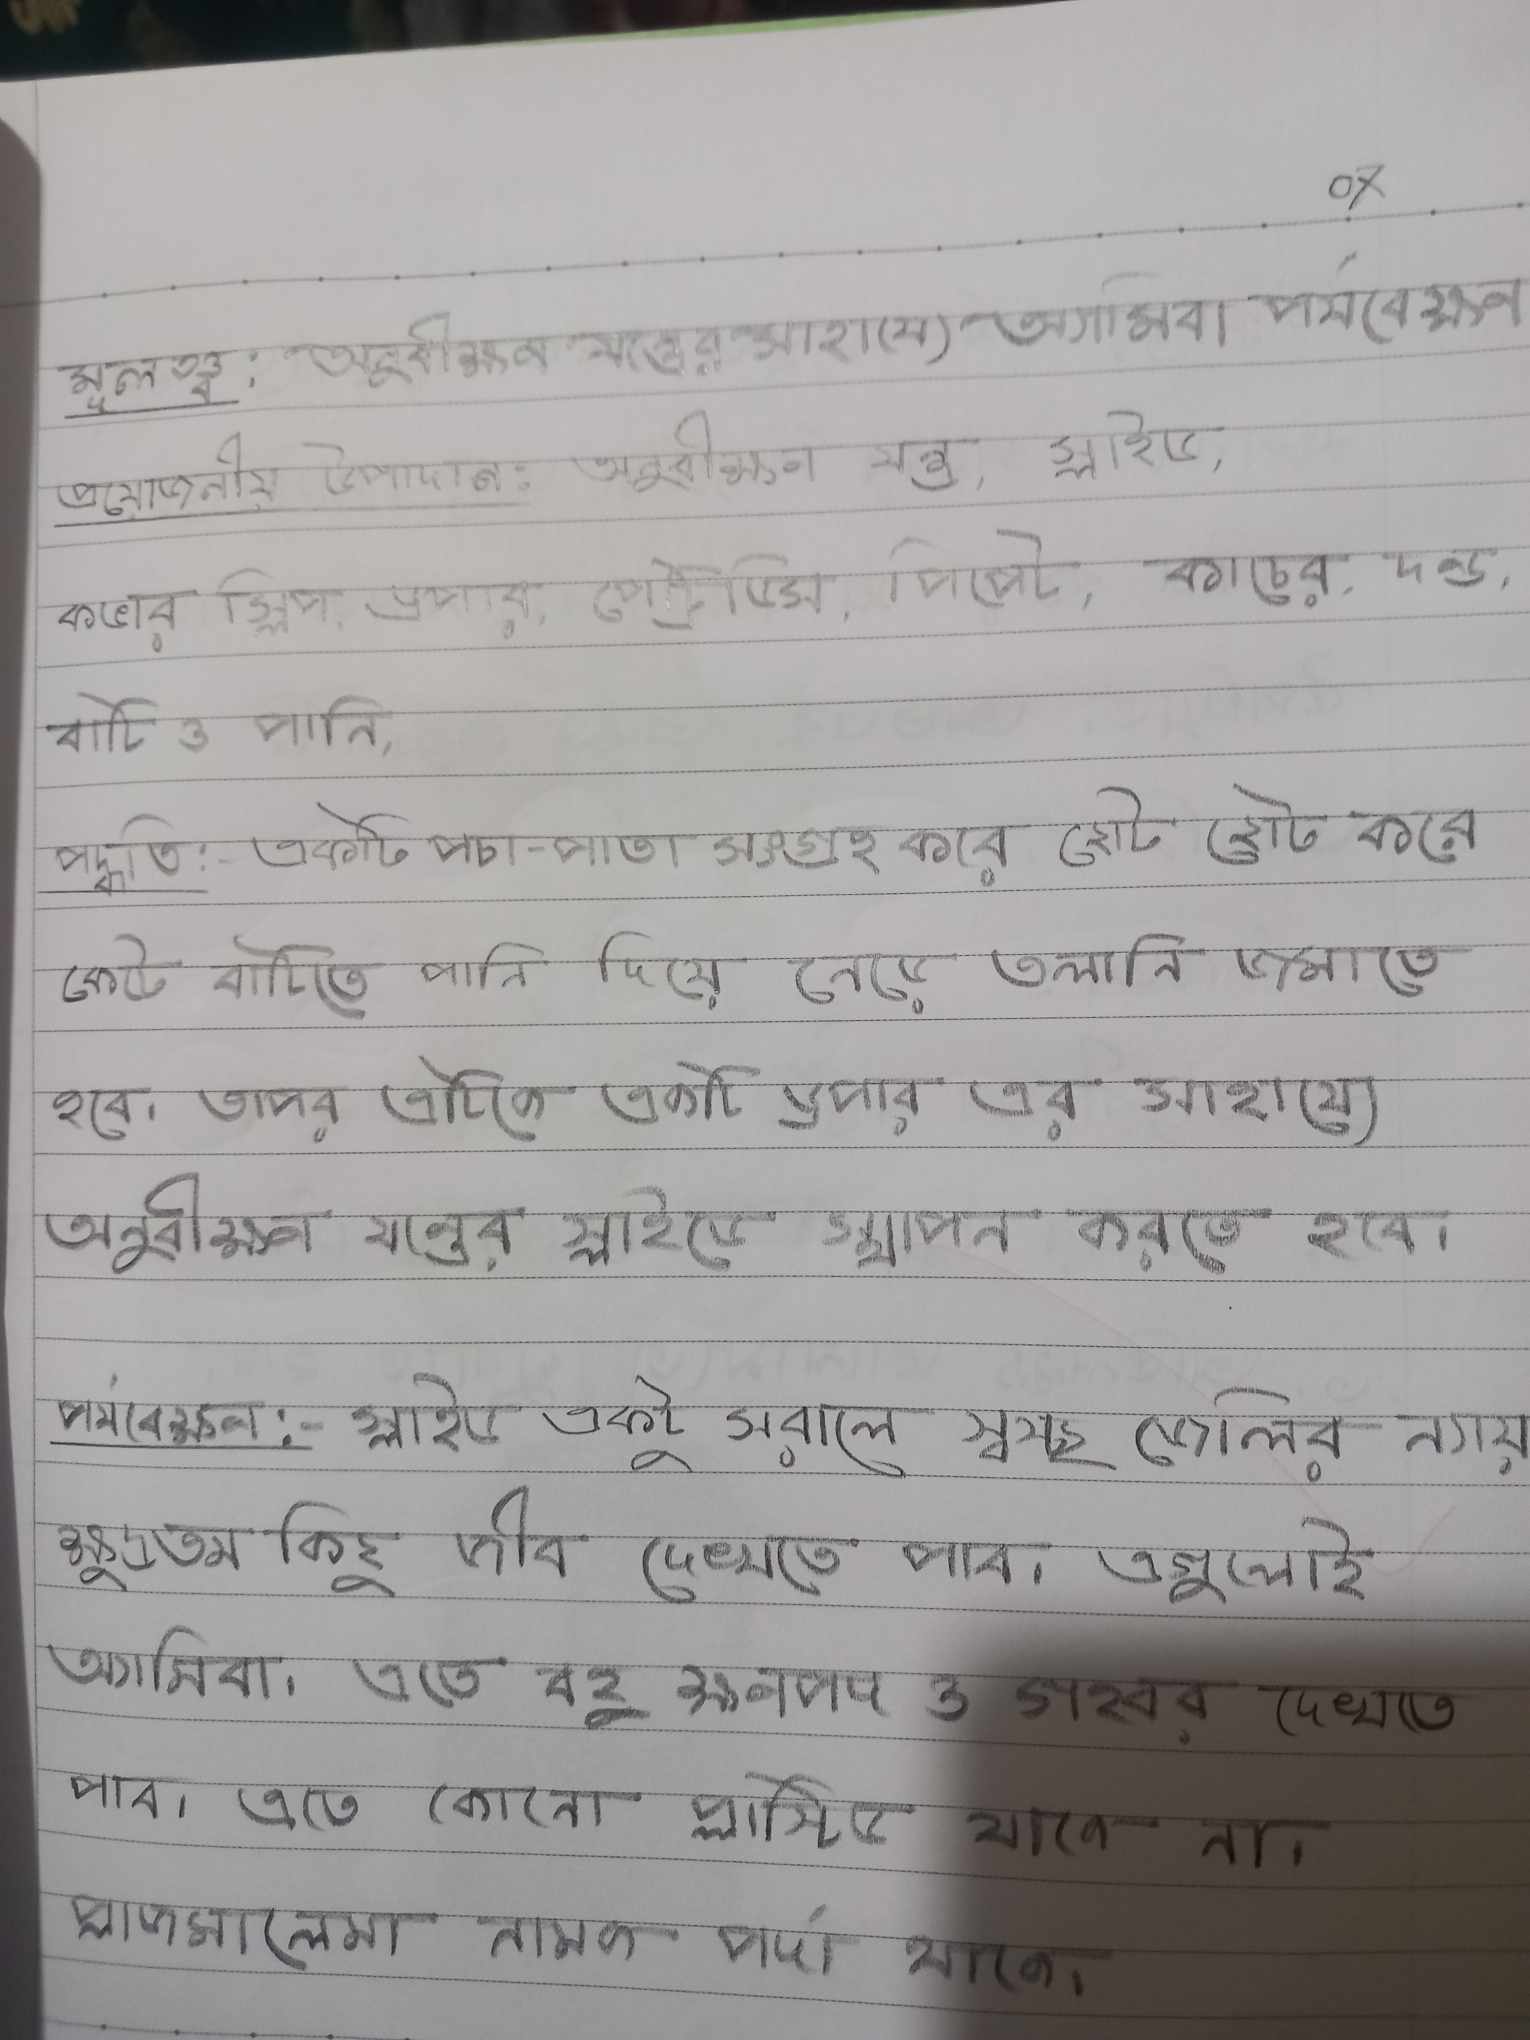 07
মূলতত্ত্ব: অনুবীক্ষন যন্ত্রের সাহায্যে অ্যামিবা পর্যবেক্ষন
প্রয়োজনীয় উপাদান: অনুবীক্ষন যন্ত্র, স্লাইড,
কভার স্লিপ, ড্রপার, পেট্রিডিস, পিপেট, কাচের, দন্ড,
বাটি ও পানি,
পদ্ধতি:- একটি পচা-পাতা সংগ্রহ করে ছোট ছোট করে
কেটে বাটিতে পানি দিয়ে নেড়ে তলানি জমাতে
হবে। তাপর এটিকে একটি ড্রপার এর সাহায্যে
অনুবীক্ষন যন্ত্রের স্লাইডে স্থাপন করতে হবে।
পর্যবেক্ষন:- স্লাইড একটু সরালে স্বচ্ছ জেলির ন্যায়
ক্ষুদ্রতম কিছু জীব দেখতে পাব। এগুলোই
অ্যামিবা। এতে বহু ক্ষনপদ ও গহ্বর দেখতে
পাব। এতে কোনো প্লাস্টিড থাকে না।
প্লাজমালেমা নামক পর্দা থাকে।